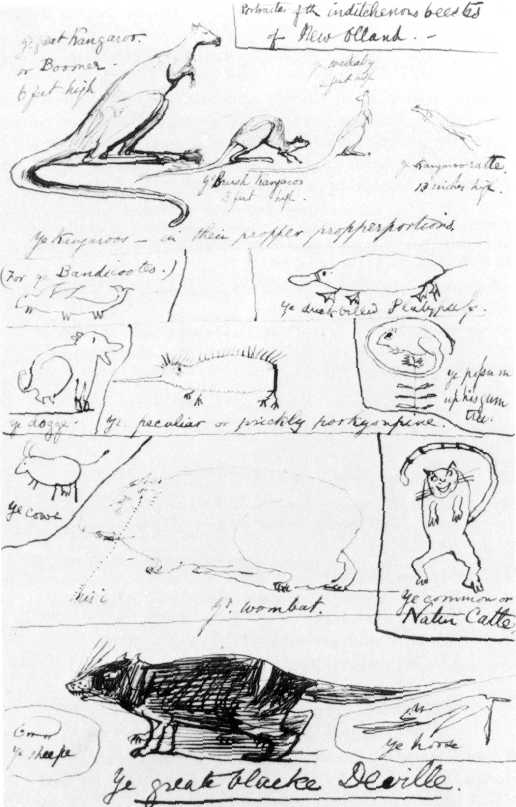 Portraites of th inditchenous beestes
of New Olland. -
Ye great Kangaroo.
or Boomer.
6 feet high
Ye
feet high
Ye Brush Kangaroo
3 feet high.
Ye Kangaroo ratte.
18 inches high.
Ye Kangaroos — in their propper propperportions.
(For ye Bandicootes.)
Ye duck-billed Platypuss.
Ye dogge.
Ye peculiar or prickly porkyounpine.
Ye possum
up his gum
tree.
Ye cowe
this is
Ye wombat.
Ye common or
Natur Catte
Ye sheepe
Ye horse
Ye greate blacke Deville.